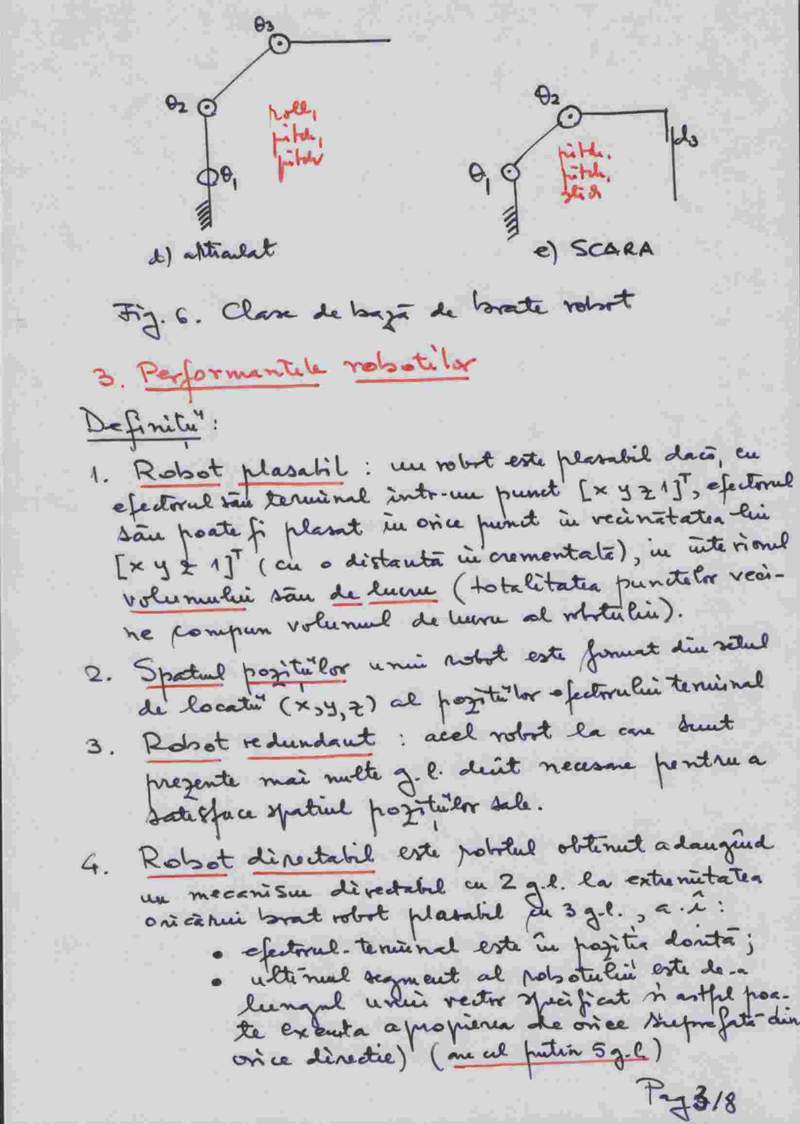 θ3
θ2
roll,
pitch,
pitch
θ1
d) articulat
θ2
θ1
pitch,
pitch,
d3
e) SCARA
Fig. 6. Clase de bază de brațe robot
3. Performanțele roboților
Definiții:
1. Robot plasabil : un robot este plasabil dacă, cu
efectorul său terminal într-un punct [x y z 1]ᵀ, efectorul
său poate fi plasat în orice punct în vecinătatea lui
[x y z 1]ᵀ (cu o distanță incrementală), în interiorul
volumului său de lucru (totalitatea punctelor veci-
ne compun volumul de lucru al robotului).
2. Spațiul pozițiilor unui robot este format din setul
de locații (x,y,z) al pozițiilor efectorului terminal
3. Robot redundant : acel robot la care sunt
prezente mai multe g.l. decît necesare pentru a
satisface spațiul pozițiilor sale.
4. Robot directabil este robotul obținut adaugînd
un mecanism directabil cu 2 g.l. la extremitatea
oricărui braț robot plasabil cu 3 g.l., a.î :
• efectorul-terminal este în poziția dorită;
• ultimul segment al robotului este de-a
lungul unui vector specificat și astfel poa-
te executa apropierea de orice suprafață din
orice direcție) (are cel puțin 5 g.l)
Pag 3/8